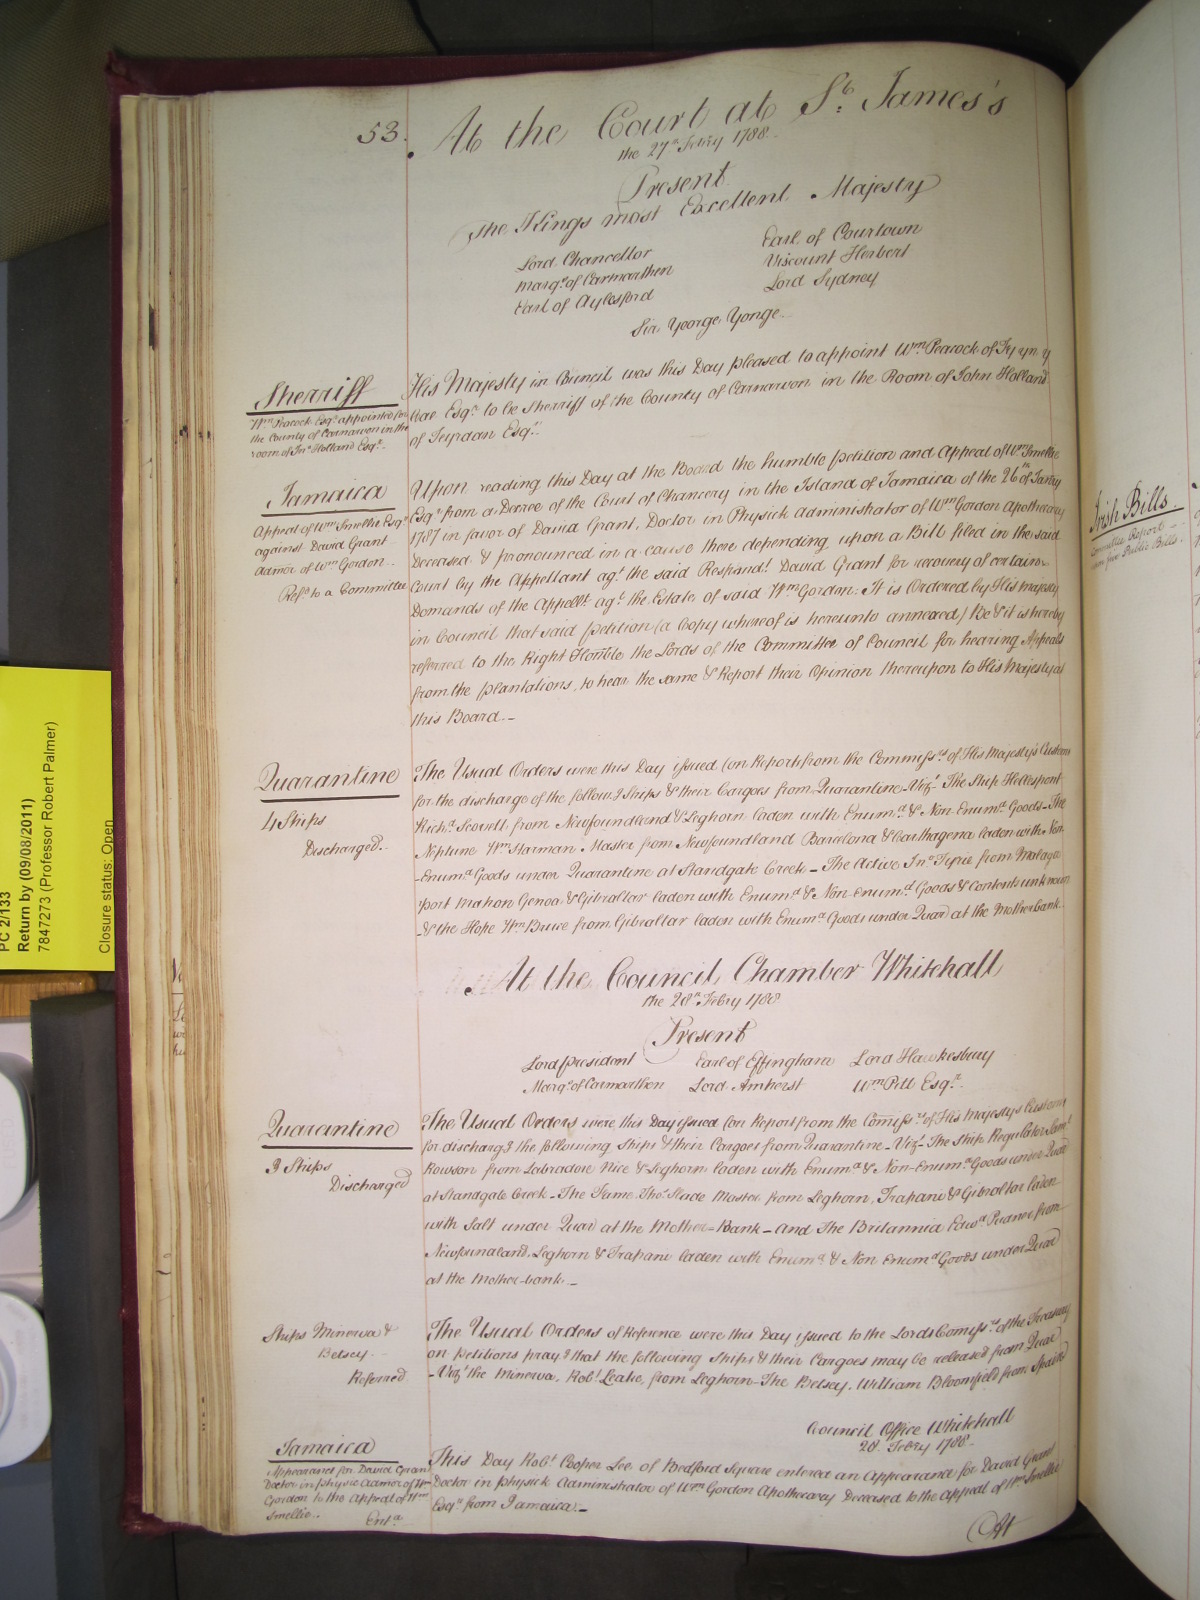 53.
At the Court at St. James's
the 27th Febry 1788.
Present
The Kings most Excellent Majesty
Lord Chancellor
Earl of Courtown
Marqs. of Carmarthen
Viscount Herbert
Earl of Aylesford
Lord Sydney
Sir George Yonge.
Sherriff
Wm Peacock Esqr. appointed for
the County of Carnarvon in the
room of Jno Holland Esqr.
His Majesty in Council was this Day pleased to appoint Wm Peacock of
Esqr. to be Sherriff of the County of Carnarvon in the Room of John Holland
of Teyrdan Esqr.
Jamaica
Appeal of Wm Smellie Esqr
against David Grant
Admor of Wm Gordon.
Refd to a Committee
Upon reading this Day at the Board the humble petition and Appeal of Wm Smellie
Esqr from a Decree of the Court of Chancery in the Island of Jamaica of the 26th of Janry
1787 in favor of David Grant, Doctor in Physick Administrator of Wm Gordon Apothecary
Deceased & pronounced in a cause there depending upon a Bill filed in the said
Court by the Appellant agt the said Respondt David Grant for recovery of certain
Demands of the Appellt agt the Estate of said Wm Gordon: It is Ordered by His Majesty
in Council that said petition (a Copy whereof is hereunto annexed) Be & it is hereby
referred to the Right Honble the Lords of the Committee of Council for hearing Appeals
from the plantations, to hear the same & Report their Opinion thereupon to His Majesty at
this Board.-
Quarantine
4 Ships
Discharged.
The Usual Orders were this Day issued (on Report from the Commissrs of His Majesty's Customs
for the discharge of the follows Ships & their Cargoes from Quarantine - Vizt The Ship Hellespont
Richd Scovell from Newfoundland & Leghorn laden with Enumd & Non-Enumd Goods - The
Neptune Wm Harman Master from Newfoundland Barcelona & Carthagena laden with Non
-Enumd Goods under Quarantine at Standgate Creek - The Active Jno from Malaga
port Mahon Genoa & Gibraltar laden with Enumd & Non-Enumd Goods & Contents unknown
- & the Hope Wm Bruce from Gibraltar laden with Enumd Goods under Quar at the Motherbank.
At the Council Chamber Whitehall
the 28th Febry 1788
Present
Lord President
Earl of Effingham
Lord Hawkesbury
Marqs. of Carmarthen
Lord Amherst
Wm Pitt Esqr.
Quarantine
3 Ships
Discharged
The Usual Orders were this Day issued (on Report from the Comissrs of His Majestys Customs
for discharg the following Ships & their Cargoes from Quarantine - Vizt The Ship Regulator Saml
Rowson from Labradore Nice & Leghorn laden with Enumd & Non-Enumd Goods under Quar
at Standgate Creek - The Fame, Thos. Slade Master from Leghorn, Trapani & Gibraltar laden
with Salt under Quar at the Mother-Bank - And The Britannia Edwd from
Newfoundland, Leghorn & Trapani laden with Enumd & Non Enumd Goods under Quar
at the Mother-bank. -
Ships Minerva &
Betsey
Referred
The Usual Orders of Reference were this Day issued to the Lords Comissrs of the Treasury
on petitions pray that the following Ships & their Cargoes may be released from Quar
- Vizt the Minerva, Robt Leake, from Leghorn - The Betsey, William Bloomfield from
Council Office Whitehall
28 Febry 1788-
Jamaica
Appearance for David Grant
Doctor in physic Admor of Wm
Gordon to the Appeal of Wm
Smellie.
Entd
This Day Robt Cooper Lee of Bedford Square entered an Appearance for David Grant
Doctor in physick Administrator of Wm Gordon Apothecary Deceased to the Appeal of Wm Smellie
Esqr from Jamaica. -
At
Irish Bills
Committee Report
Public Bills.
PC 2/133
Return by (09/08/2011)
7847273 (Professor Robert Palmer)
Closure status: Open